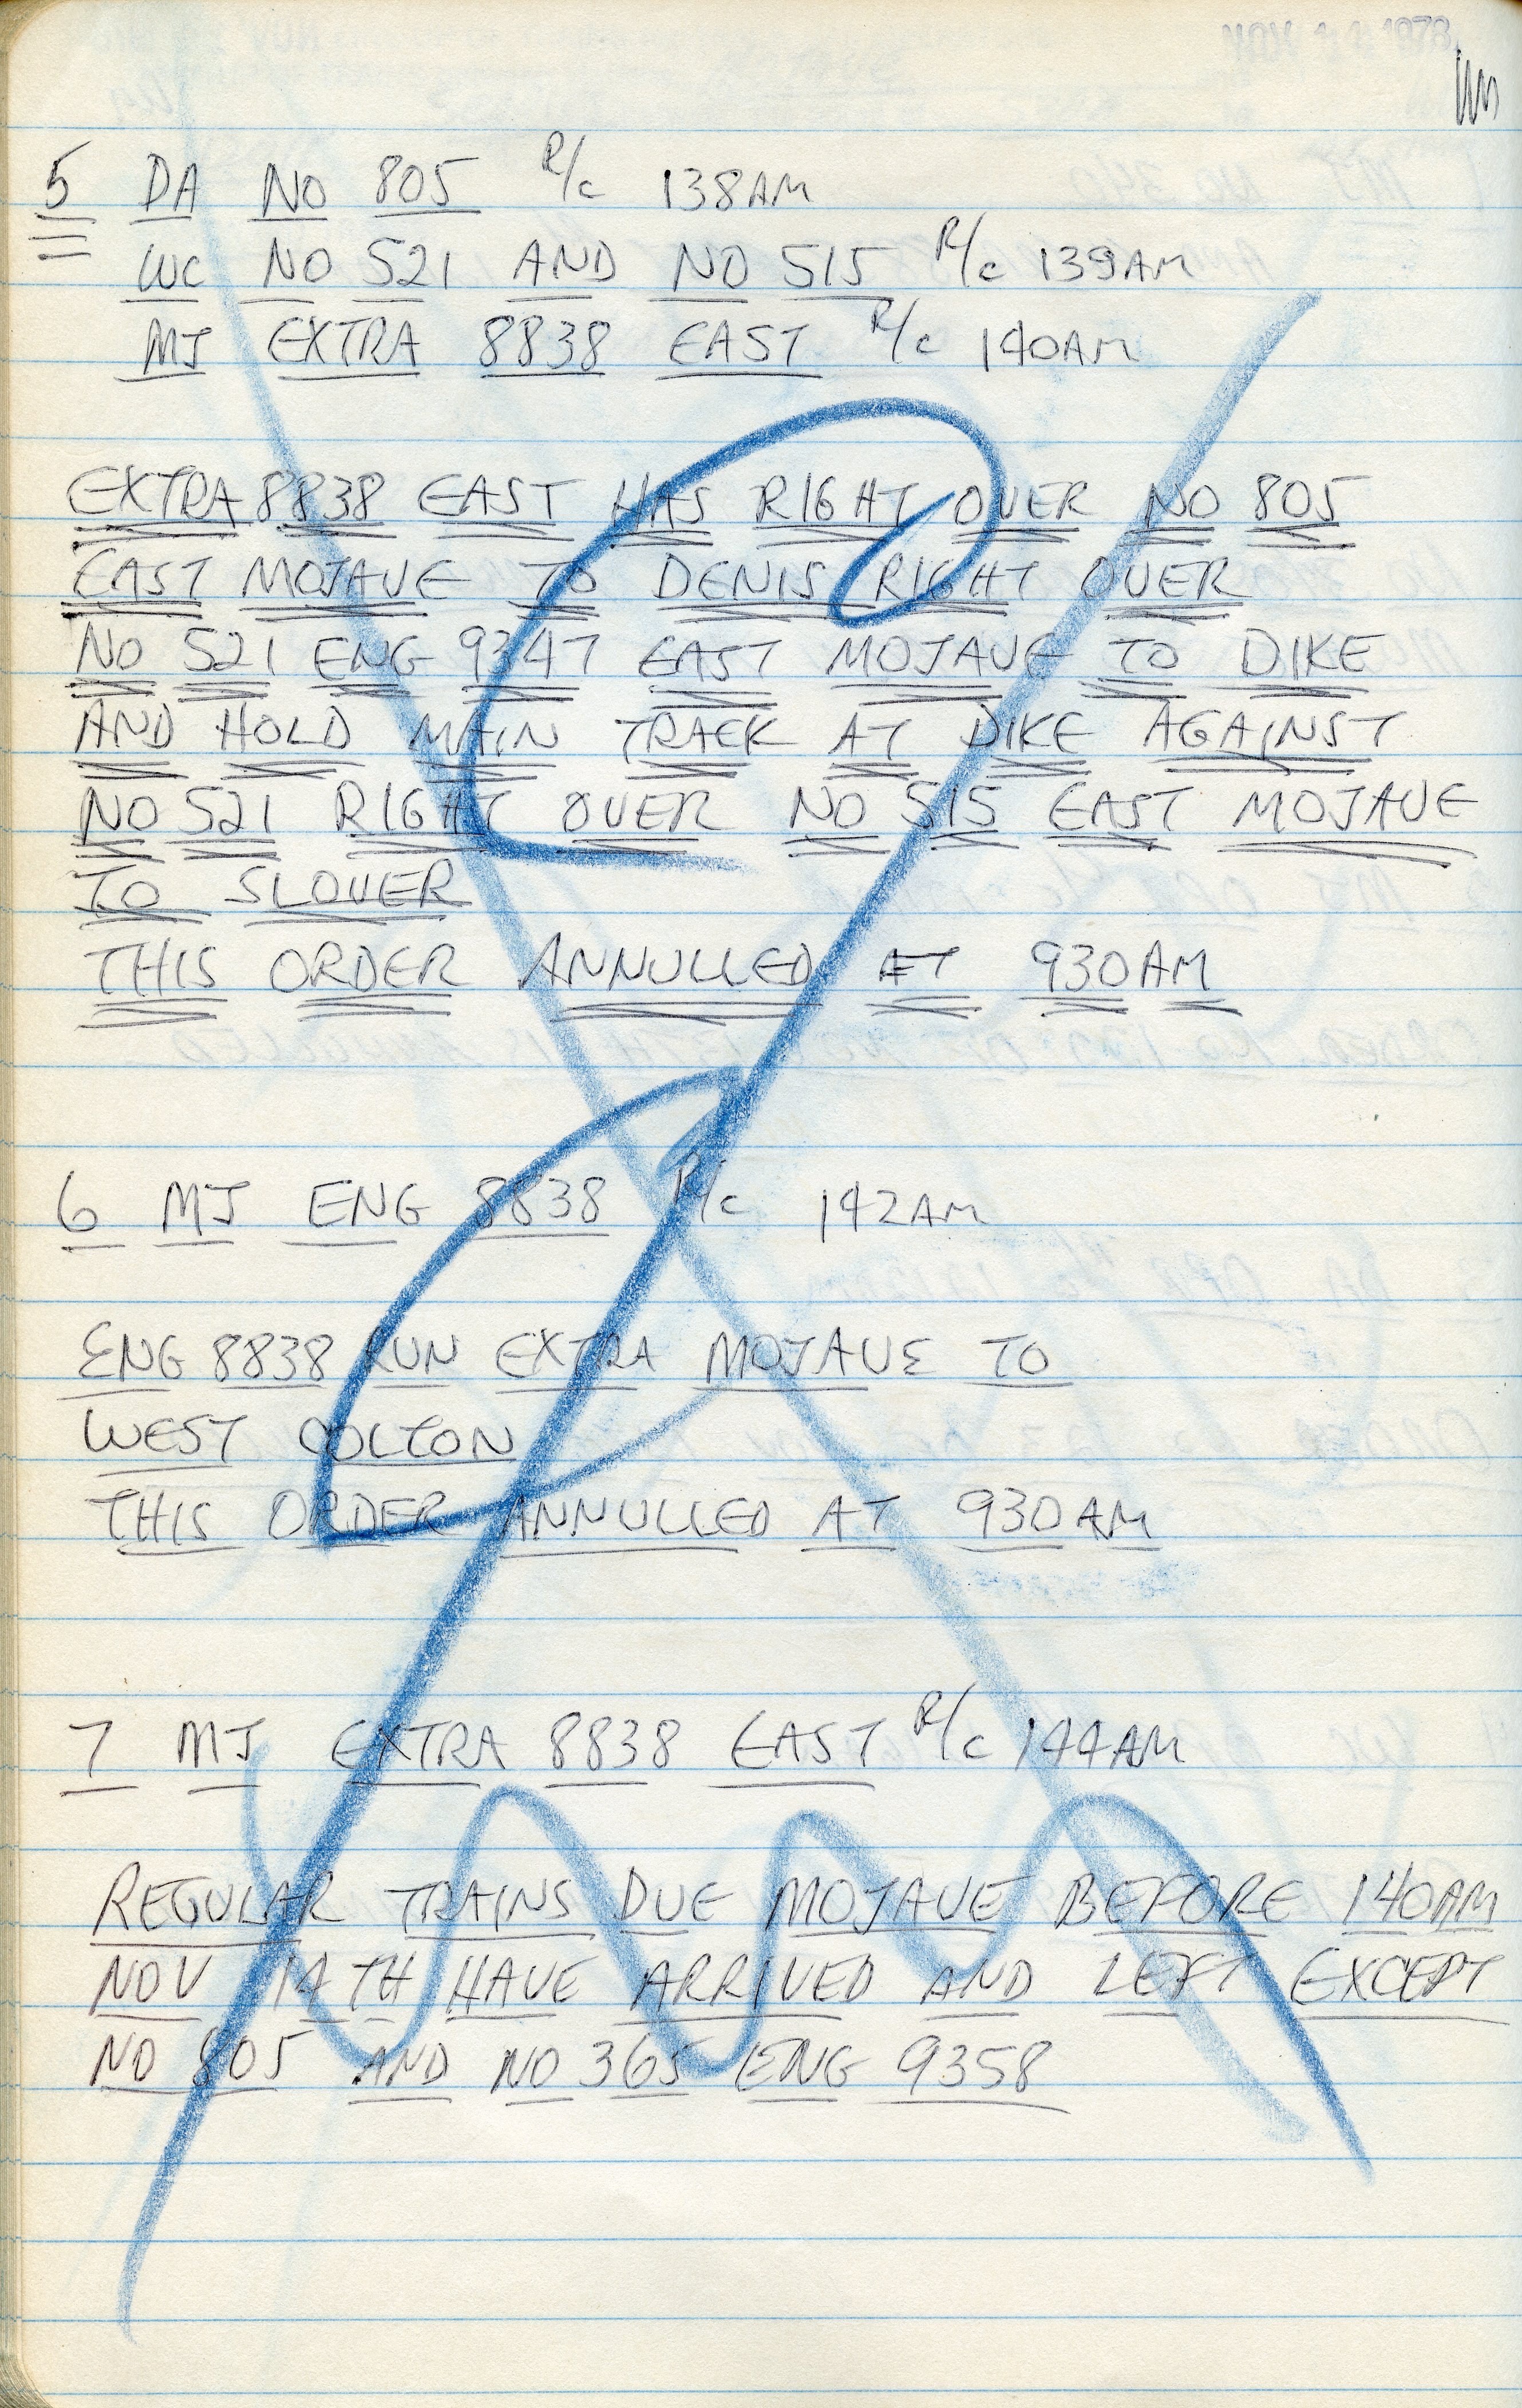 NOV 14 1978
5 DA NO 805 R/c 138AM
WC NO 521 AND NO 515 R/c 139AM
MJ EXTRA 8838 EAST R/c 140AM
EXTRA 8838 EAST HAS RIGHT OVER NO 805
EAST MOJAVE TO DENIS RIGHT OVER
NO 521 ENG 9347 EAST MOJAVE TO DIKE
AND HOLD MAIN TRACK AT DIKE AGAINST
NO 521 RIGHT OVER NO 515 EAST MOJAVE
TO SLOVER
THIS ORDER ANNULLED AT 930AM
6 MJ ENG 8838 R/c 142AM
ENG 8838 RUN EXTRA MOJAVE TO
WEST COLTON
THIS ORDER ANNULLED AT 930AM
7 MJ EXTRA 8838 EAST R/c 144AM
REGULAR TRAINS DUE MOJAVE BEFORE 140AM
NOV 14TH HAVE ARRIVED AND LEFT EXCEPT
NO 805 AND NO 365 ENG 9358